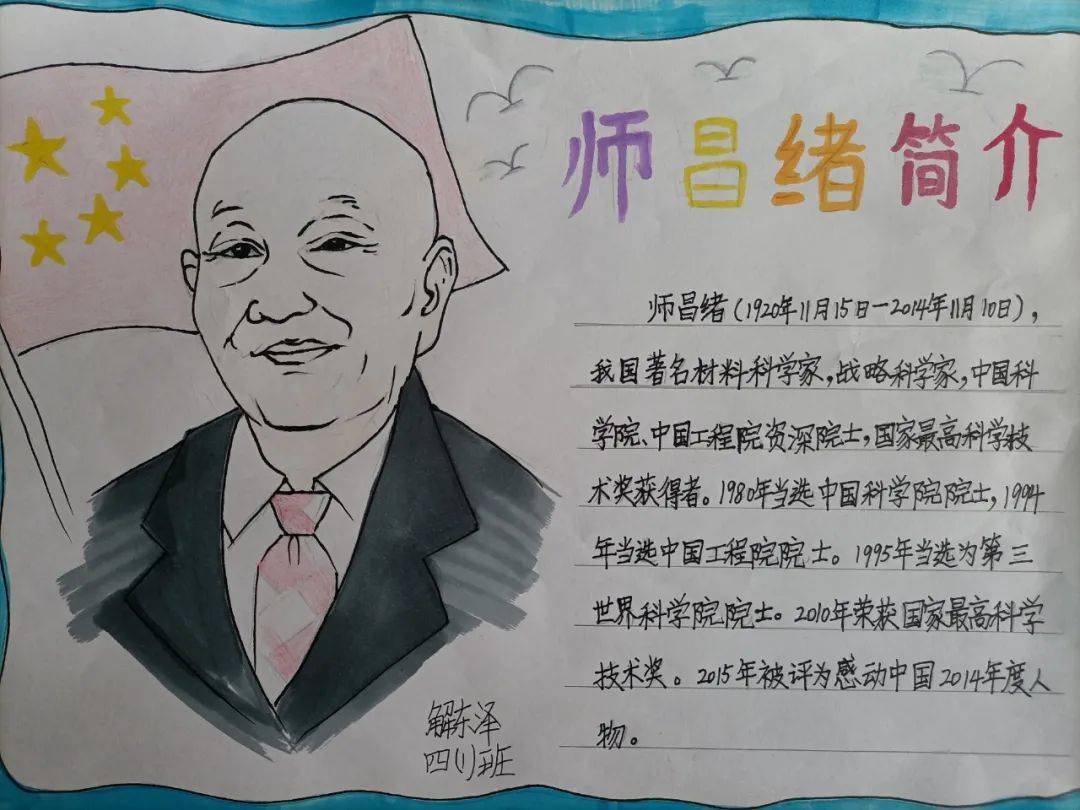 师昌绪简介
师昌绪(1920年11月15日一2014年11月10日),
我国著名材料科学家,战略科学家,中国科
学院、中国工程院资深院士,国家最高科学技
术奖获得者。1980年当选中国科学院院士,1994
年当选中国工程院院士。1995年当选为第三
世界科学院院士。2010年荣获国家最高科学
技术奖。2015年被评为感动中国2014年度人
物。
解东泽
四(1)班